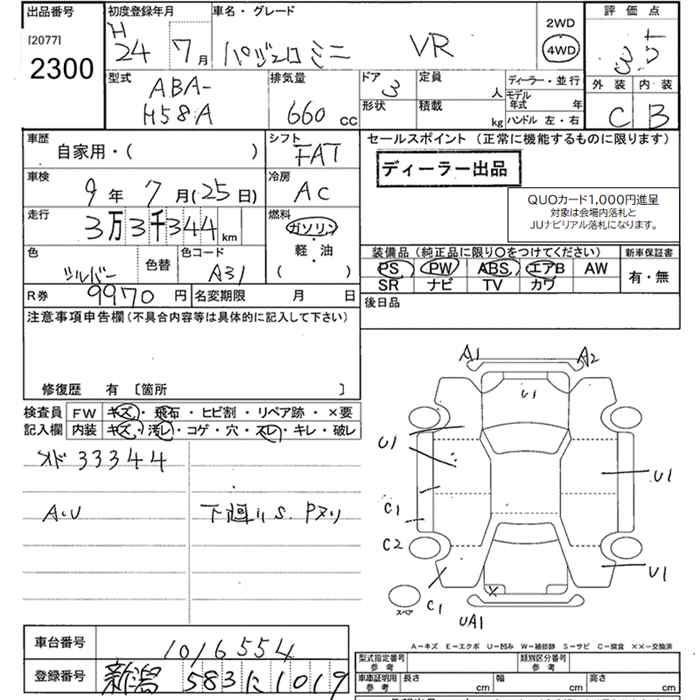 出品番号
[2077]
2300
初度登録年月
H
24 7月
車名・グレード
パジェロミニ VR
2WD
4WD
評価点
3.5
外装 内装
C B
型式
ABA-
H58A
排気量
660 cc
ドア 3
形状
定員
人
積載
kg
ディーラー・並行
モデル
年式 年
ハンドル 左・右
車歴
自家用・( )
シフト
FAT
車検
9年 7月(25日)
冷房
AC
走行
3万3千344 km
燃料
ガソリン
軽・油
( )
色
シルバー
色替
色コード
A31
R券 9970 円
名変期限 月 日
セールスポイント (正常に機能するものに限ります)
ディーラー出品
QUOカード1,000円進呈
対象は会場内落札と
JUナビリアル落札になります。
装備品 (純正品に限り○をつけてください)
新車保証書
PS PW ABS エアB AW
SR ナビ TV カワ
有・無
後日品
注意事項申告欄 (不具合内容等は具体的に記入して下さい)
修復歴 有 〔箇所 〕
検査員
記入欄
FW キズ・飛石・ヒビ割・リペア跡・×要
内装 キズ・汚レ・コゲ・穴・スレ・キレ・破レ
メド 33344
AU
下廻りS. Pヌリ
A1
A2
U1
U1
U1
C1
C2
C1
U1
UA1
X
スペア
車台番号
1016554
登録番号
新潟 583に1019
A－キズ E－エクボ U－凹み W－補修跡 S－サビ C－腐食 ××－交換済
型式指定番号
参考
類別区分番号
参考
車庫証明用
参考
長さ
cm
幅
cm
高さ
cm